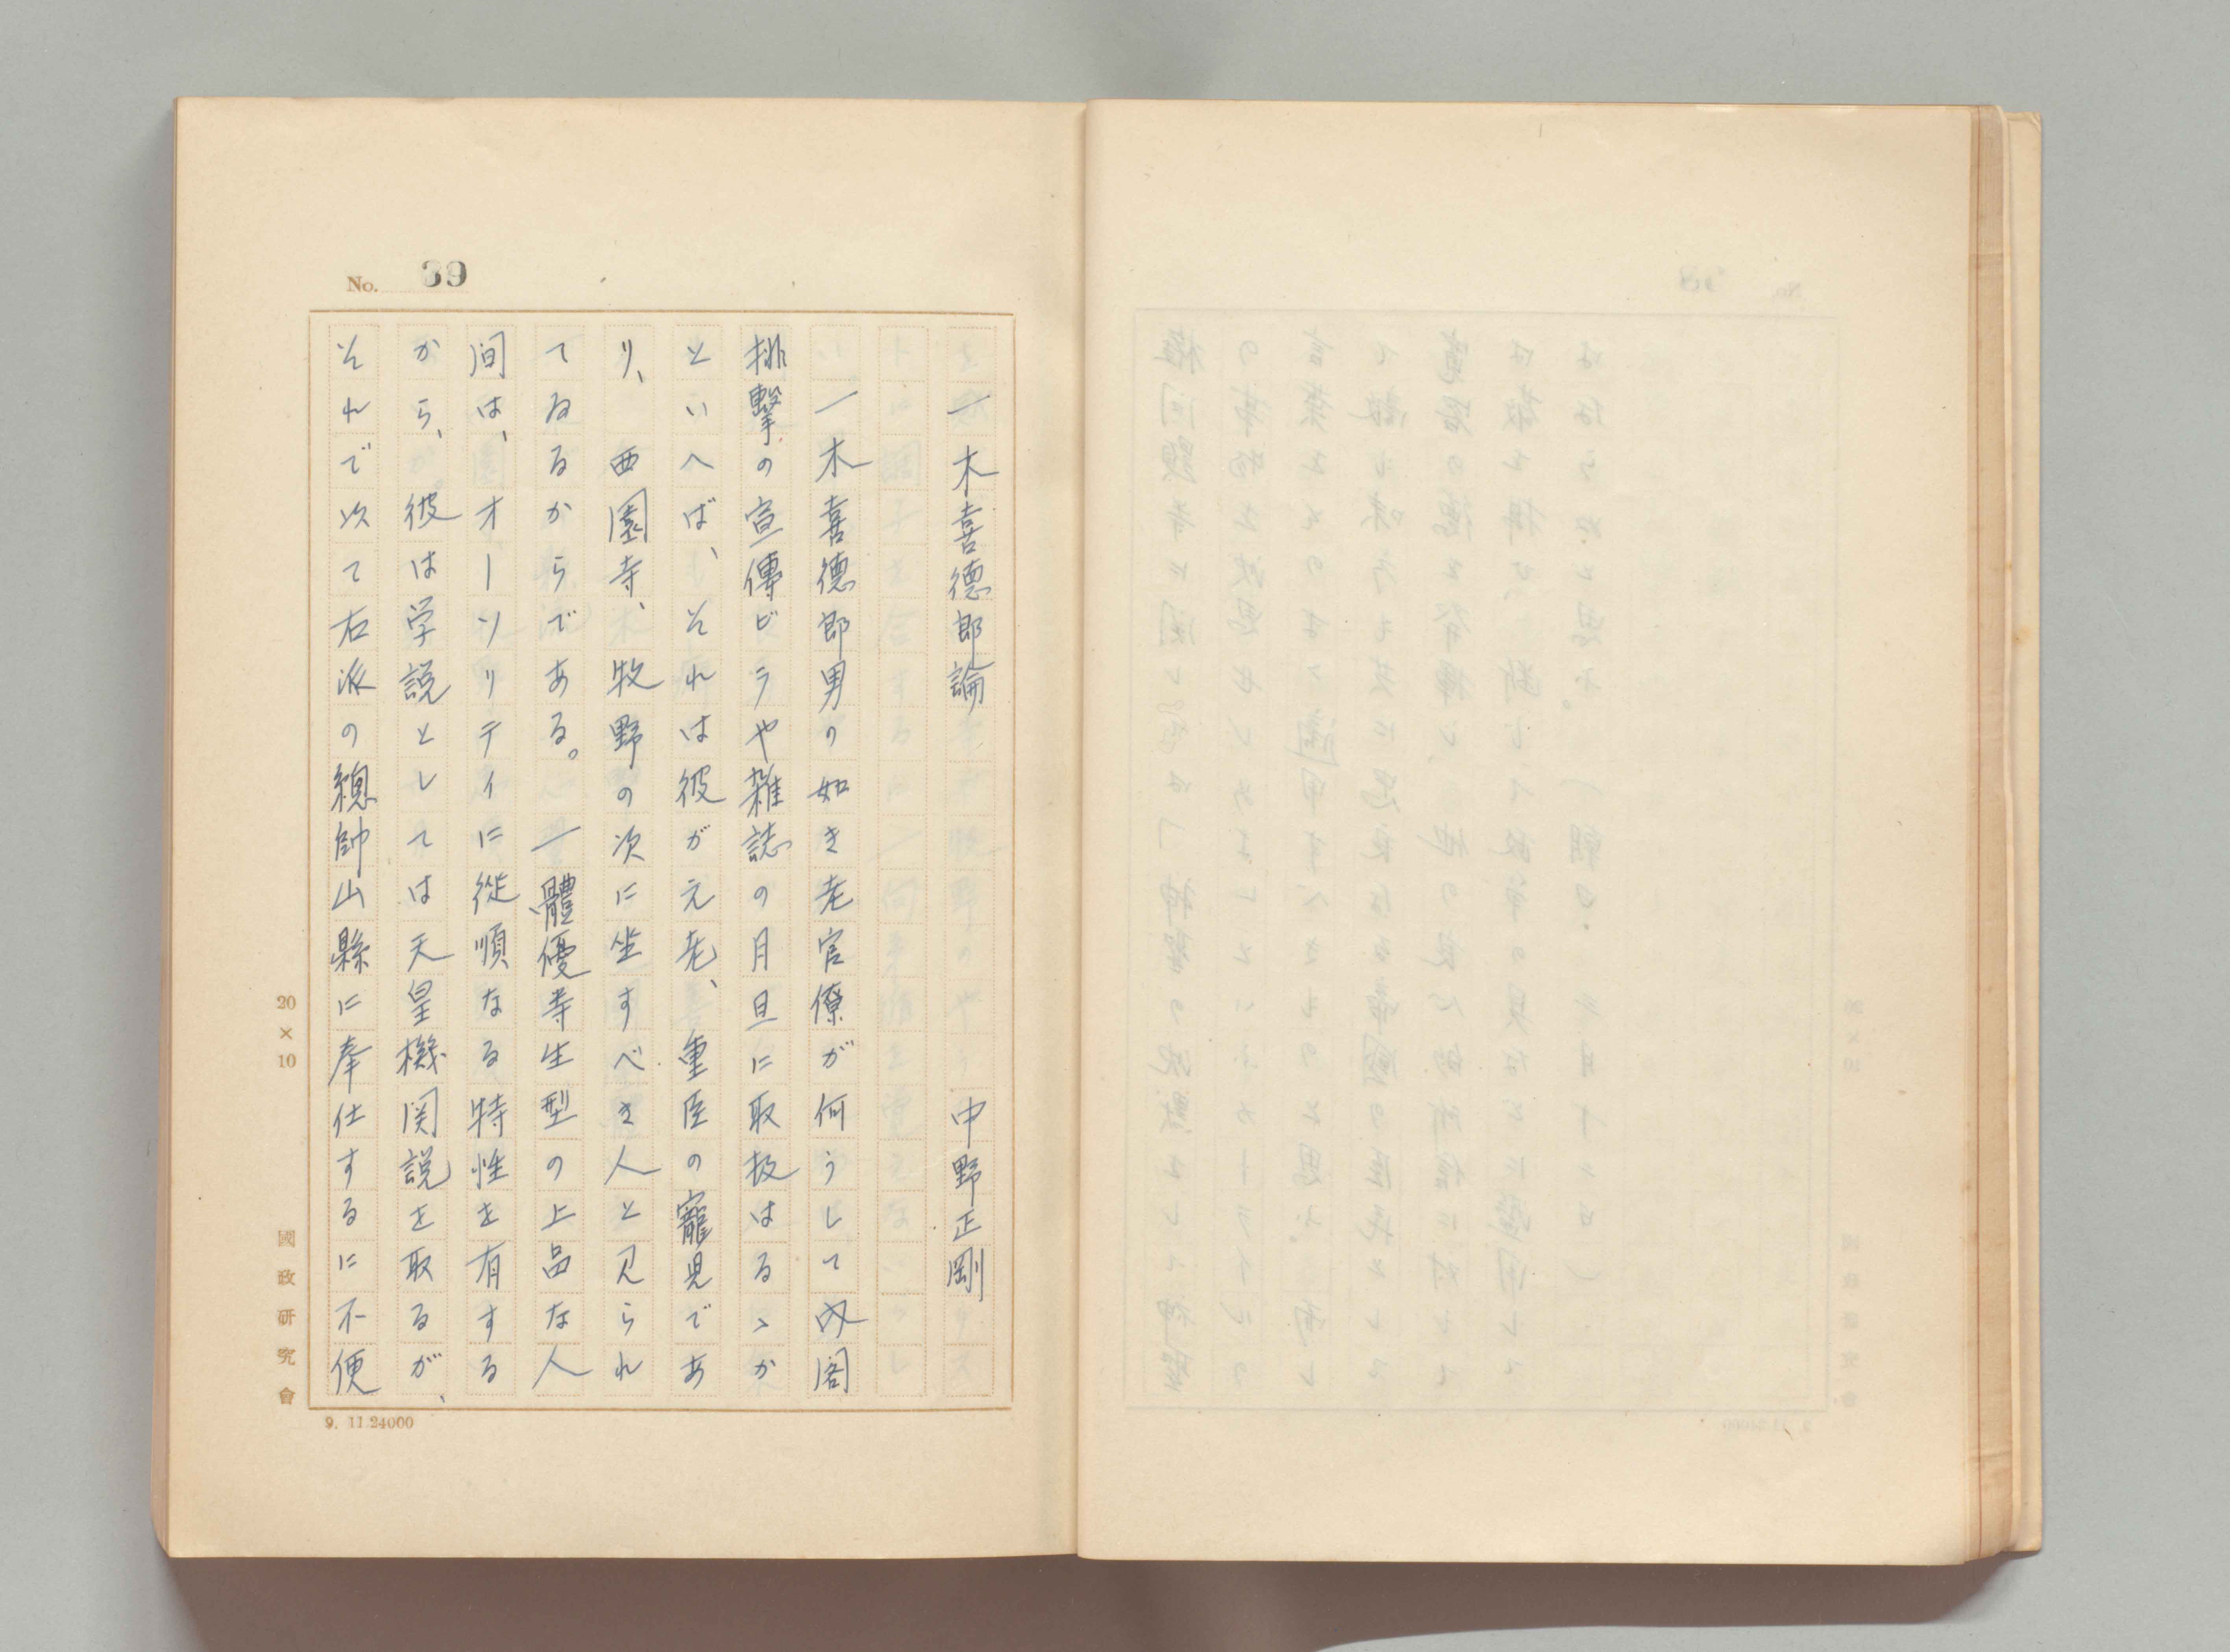 No. 39
一木喜德郎論　中野正剛
一木喜德郎男の如き老官僚が何うして内閣
排擊の宣傳ビラや雑誌の月旦に取扱はるゝか
といへば、それは彼が元老、重臣の寵児であ
り、西園寺、牧野の次に坐すべき人と見られ
てゐるからである。一體優等生型の上品な人
間は、オーソリテイに從順なる特性を有する
から、彼は学説としては天皇機関説を取るが、
それで以て右派の總帥山縣に奉仕するに不便
20×10
國政研究會
9. 11.24000